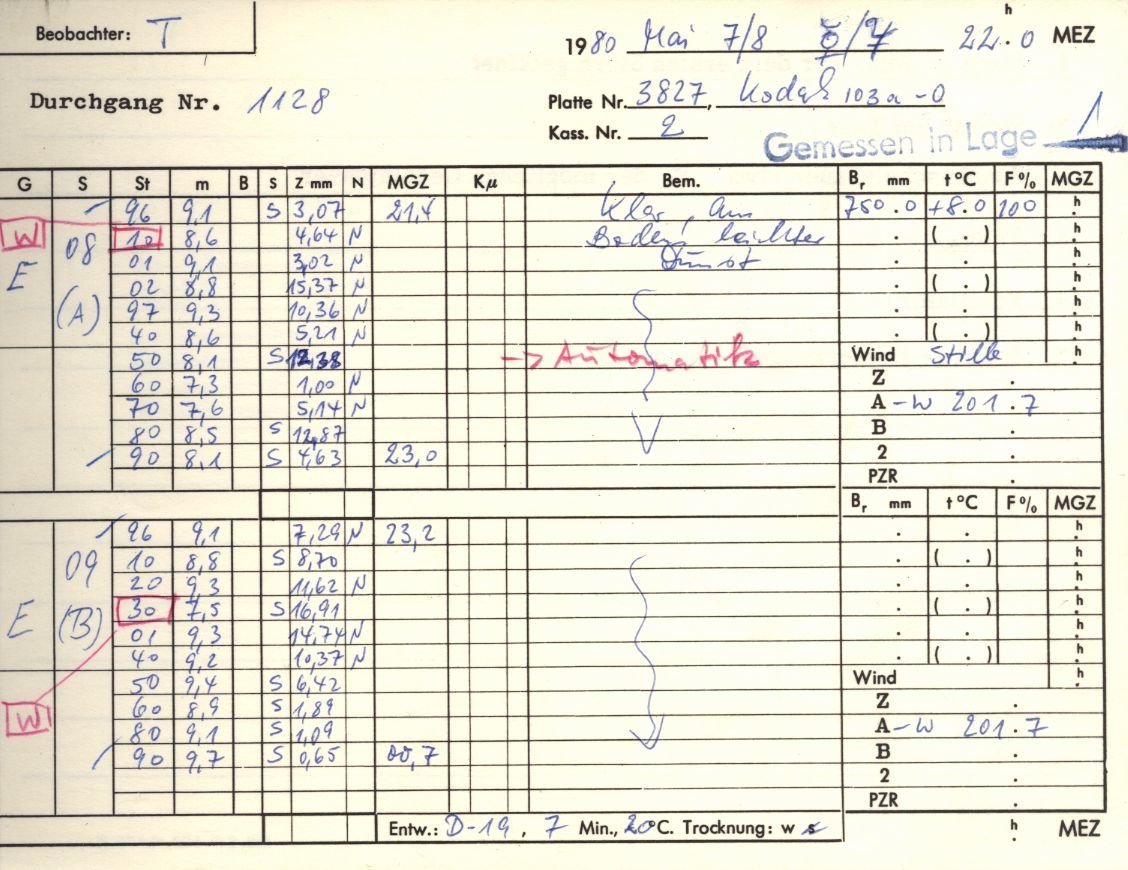 Beobachter: T
1980 Mai 7/8 ☿/♀ 22.0 h MEZ
Durchgang Nr. 1128
Platte Nr. 3827, Kodak 103a-O
Kass. Nr. 2
Gemessen in Lage 1
G S St m B S Z mm N MGZ Kμ Bem. Br mm t°C F% MGZ
96 9,1 S 3,07 21,4 Klar, am 750.0 +8.0 100 h
W 10 8,6 4,64 N Boden leichter ( . ) h
E 08 01 9,1 3,02 N Dunst h
02 8,8 15,37 N ( . ) h
(A) 97 9,3 10,36 N h
40 8,6 5,21 N ( . ) h
50 8,1 S 12,38 -> Automatik Wind Stille h
60 7,3 1,00 N Z .
70 7,6 5,14 N A -W 201.7
80 8,5 S 12,87 B .
90 8,1 S 4,63 23,0 2 .
PZR .
Br mm t°C F% MGZ
96 9,1 7,29 N 23,2 . . h
09 10 8,8 S 8,70 . ( . ) h
20 9,3 11,62 N . . h
E (B) 30 7,5 S 16,91 . ( . ) h
01 9,3 14,74 N . . h
40 9,2 10,37 N . ( . ) h
50 9,4 S 6,42 Wind h
W 60 8,9 S 1,89 Z .
80 9,1 S 1,09 A -W 201.7
90 9,7 S 0,65 00,7 B .
2 .
PZR .
Entw.: D-19, 7 Min., 20°C. Trocknung: w s h MEZ